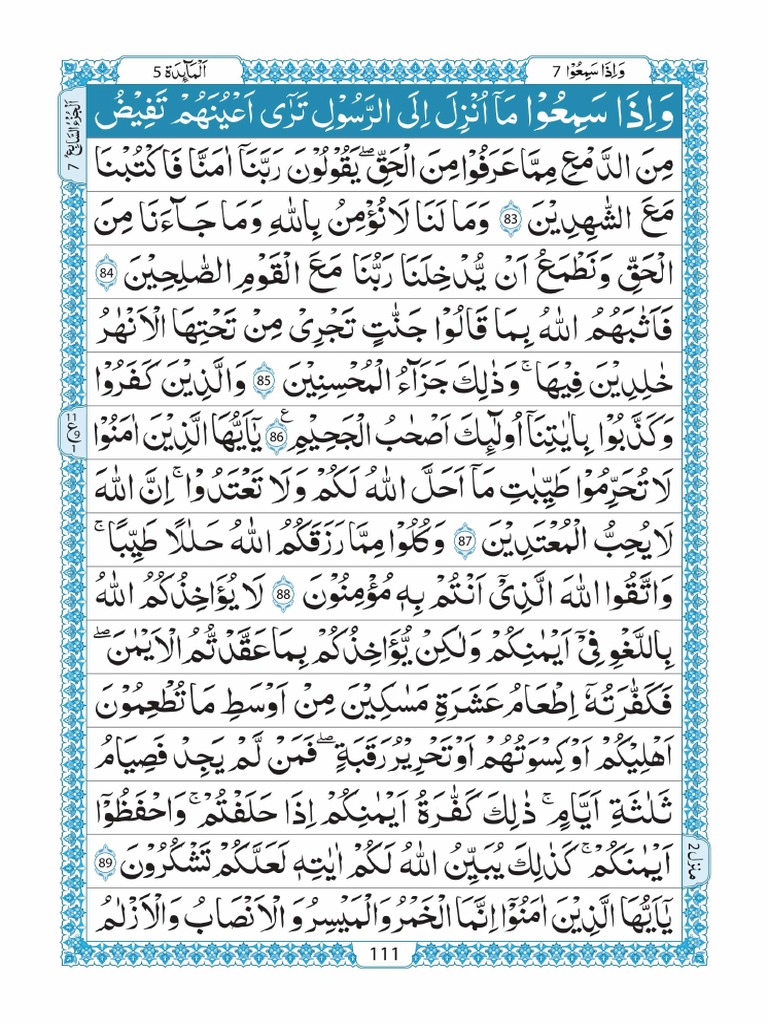 وَاِذَا سَمِعُوۡا 7
اَلۡمَآئِدَة 5
اَلۡجُزۡءُ السَّابِعُ 7
وَاِذَا سَمِعُوۡا مَاۤ اُنۡزِلَ اِلَى الرَّسُوۡلِ تَرٰٓى اَعۡيُنَهُمۡ تَفِيۡضُ
مِنَ الدَّمۡعِ مِمَّا عَرَفُوۡا مِنَ الۡحَقِّ ۖ يَقُوۡلُوۡنَ رَبَّنَاۤ اٰمَنَّا فَاكۡتُبۡنَا
مَعَ الشّٰهِدِيۡنَ 83 وَمَا لَنَا لَا نُؤۡمِنُ بِاللّٰهِ وَمَا جَآءَنَا مِنَ
الۡحَقِّ وَنَطۡمَعُ اَنۡ يُّدۡخِلَنَا رَبُّنَا مَعَ الۡقَوۡمِ الصّٰلِحِيۡنَ 84
فَاَثٰبَهُمُ اللّٰهُ بِمَا قَالُوۡا جَنّٰتٍ تَجۡرِىۡ مِنۡ تَحۡتِهَا الۡاَنۡهٰرُ
خٰلِدِيۡنَ فِيۡهَا ۚ وَذٰلِكَ جَزَآءُ الۡمُحۡسِنِيۡنَ 85 وَالَّذِيۡنَ كَفَرُوۡا
وَكَذَّبُوۡا بِاٰيٰتِنَاۤ اُولٰٓئِكَ اَصۡحٰبُ الۡجَحِيۡمِ 86 ع يٰۤاَيُّهَا الَّذِيۡنَ اٰمَنُوۡا
لَا تُحَرِّمُوۡا طَيِّبٰتِ مَاۤ اَحَلَّ اللّٰهُ لَكُمۡ وَلَا تَعۡتَدُوۡا ۚ اِنَّ اللّٰهَ
لَا يُحِبُّ الۡمُعۡتَدِيۡنَ 87 وَكُلُوۡا مِمَّا رَزَقَكُمُ اللّٰهُ حَلٰلًا طَيِّبًا ۚ
وَاتَّقُوا اللّٰهَ الَّذِىۡۤ اَنۡتُمۡ بِهٖ مُؤۡمِنُوۡنَ 88 لَا يُؤَاخِذُكُمُ اللّٰهُ
بِاللَّغۡوِ فِىۡۤ اَيۡمٰنِكُمۡ وَلٰكِنۡ يُّؤَاخِذُكُمۡ بِمَا عَقَّدْتُّمُ الۡاَيۡمٰنَ ۖ
فَكَفَّٰرَتُهٗۤ اِطۡعَامُ عَشَرَةِ مَسٰكِيۡنَ مِنۡ اَوۡسَطِ مَا تُطۡعِمُوۡنَ
اَهۡلِيۡكُمۡ اَوۡ كِسۡوَتُهُمۡ اَوۡ تَحۡرِيۡرُ رَقَبَةٍ ۖ فَمَنۡ لَّمۡ يَجِدۡ فَصِيَامُ
ثَلٰثَةِ اَيَّامٍ ۚ ذٰلِكَ كَفَّٰرَةُ اَيۡمٰنِكُمۡ اِذَا حَلَفۡتُمۡ ۚ وَاحۡفَظُوۡۤا
اَيۡمٰنَكُمۡ ۚ كَذٰلِكَ يُبَيِّنُ اللّٰهُ لَكُمۡ اٰيٰتِهٖ لَعَلَّكُمۡ تَشۡكُرُوۡنَ 89
يٰۤاَيُّهَا الَّذِيۡنَ اٰمَنُوۡۤا اِنَّمَا الۡخَمۡرُ وَالۡمَيۡسِرُ وَالۡاَنۡصَابُ وَالۡاَزۡلٰمُ
منزل 2
111